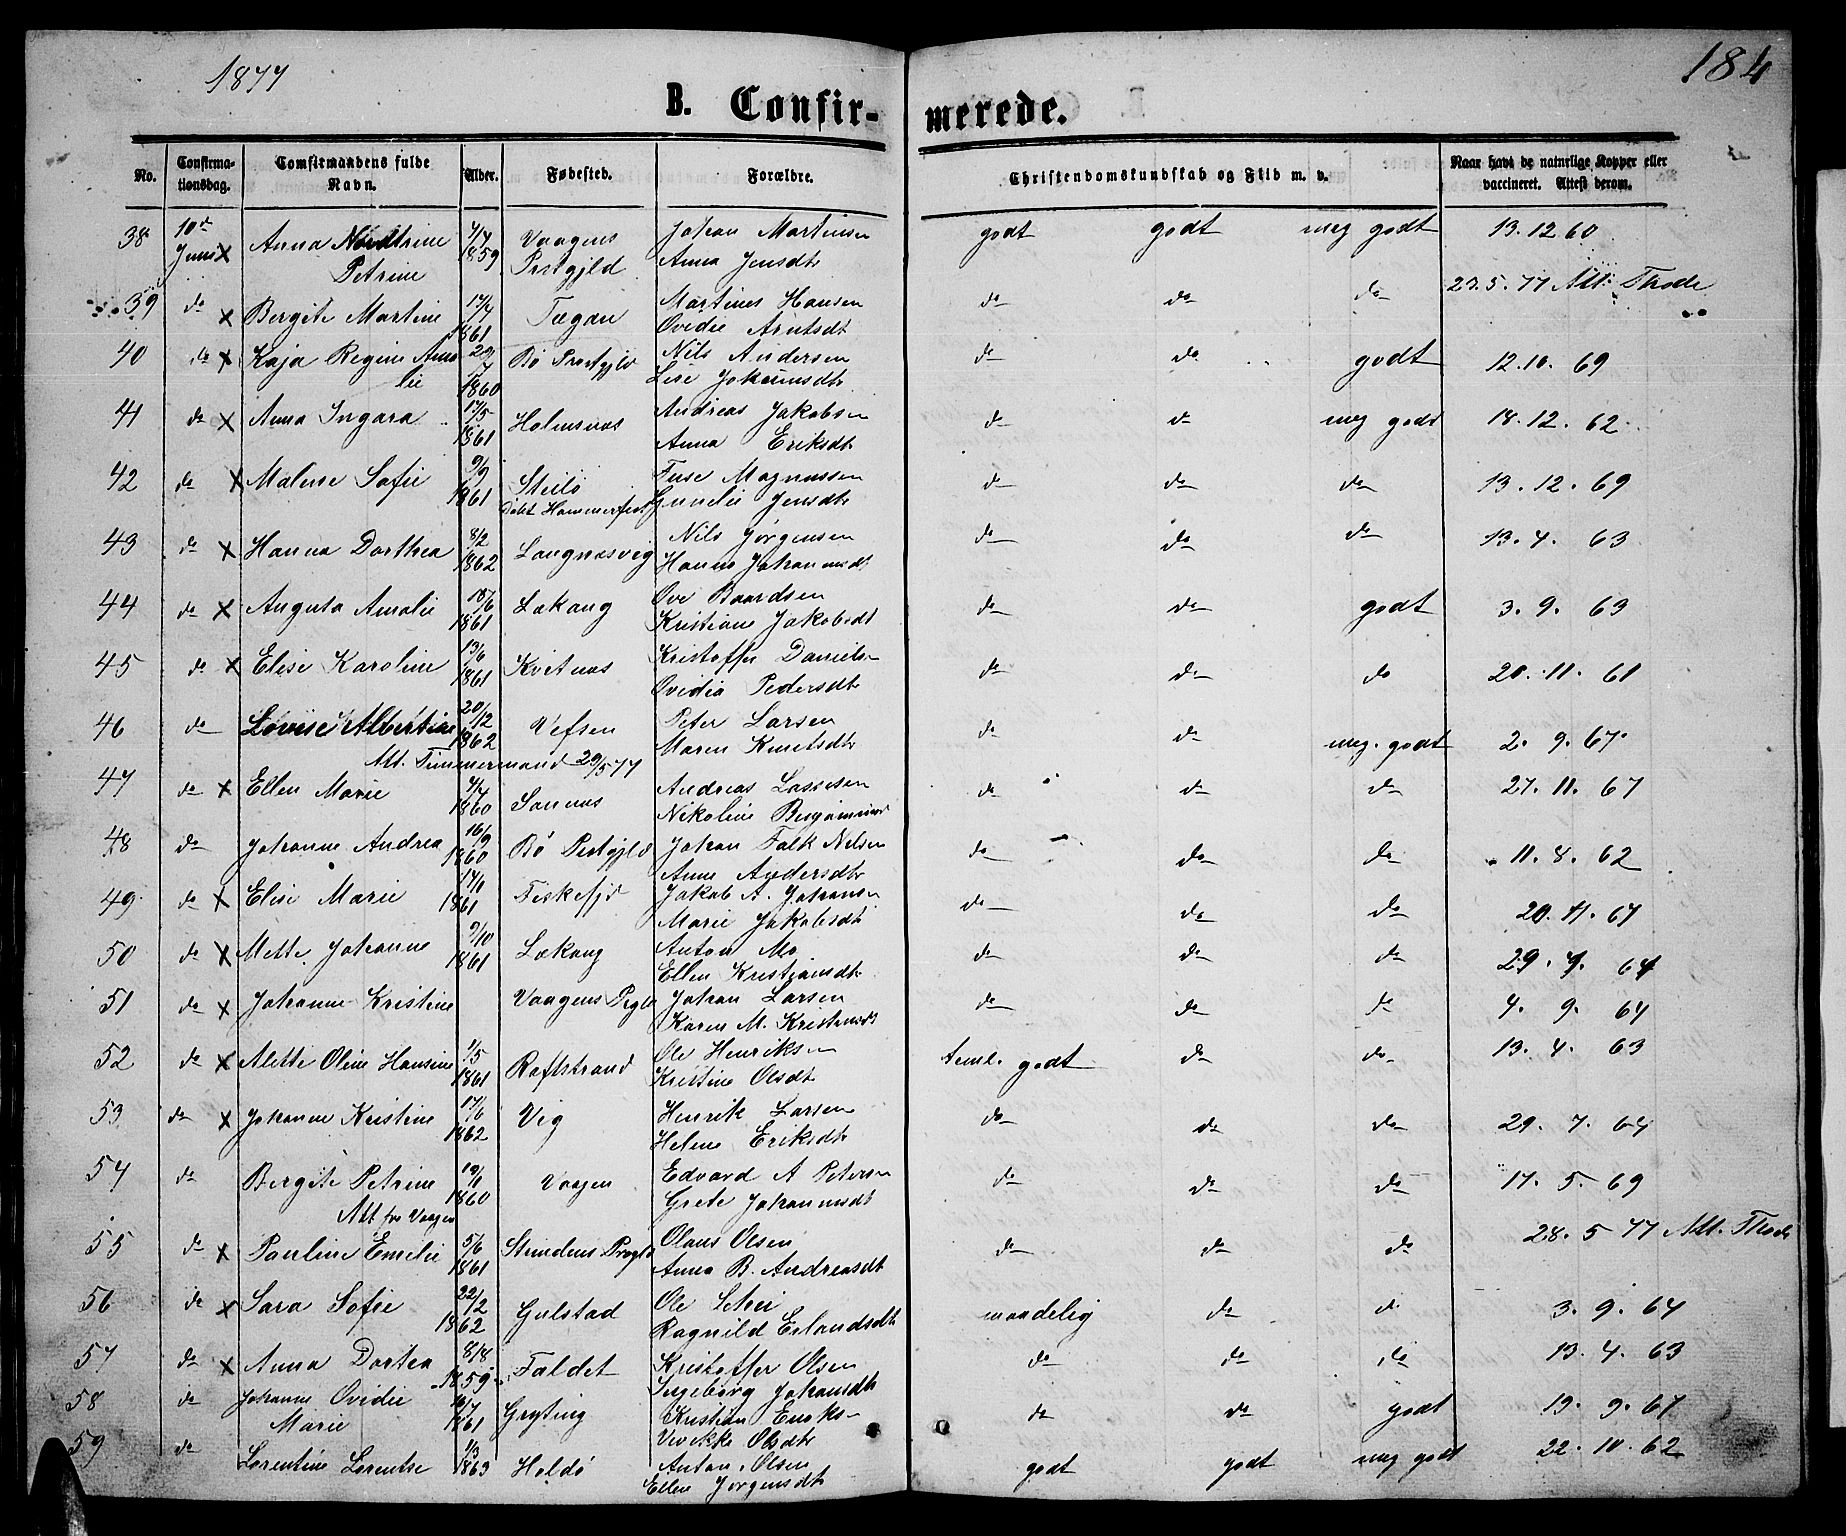 1877
184
B. Confir-merede.
No. Confirmationsdag. Comfirmandens fulde Navn. Alder. Fødested. Forældre. Christendomskundskab og Flid m. v. Naar havt de naturlige Kopper eller vaccineret. Attest derom.
38 10de Juni x Anna Nordtrine Petrine 4/7 1859 Vaagens Prstgjld Johan Martinsen Anna Jensdtr godt godt meg godt 13. 12 60
39 do x Bergite Martine 17/7 1861 Martines Hansen Ovidie Arntsdtr do do do 23. 5. 77 Att: Thode
40 do x Kaja Regine 1860 Bø Prestgjld Nils Andersen Lise do do godt 12. 10. 69
41 do x Anna Ingara 17/5 1861 Holmsnæs Andreas Jakobsen Anna Eriksdtr do do meg godt 18. 12. 62
42 do x Malene Sofie 9/9 1861 Steilø Døbt Hammerfest Magnussen Gunelie Jensdtr do do do 13. 12. 69
43 do x Hanna Dorthea 8/2 1862 Langnæsvig Nils Jørgensen Hanna Johannesdt do do do 13. 4. 63
44 do x Augusta Amalie 18/6 1861 Lækang Ove Baardsen Kristiane Jakobsdt do do godt 3. 9. 63
45 do x Elise Karoline 13/6 1861 Kvitnæs Kristoffer Daniels Ovidia Pedersdtr do do do 20. 11. 61
46 do Lovise Albertine 20/12 1862 Vefsen Peter Larsen Maren Knutsdtr do do meg. godt 2. 9. 67
Att. Timmermand 29/5 77
47 do x Ellen Marie 4/7 1860 Sannæs Andreas Lassesen Nikoline do do do 27. 11. 67
48 do Johanne Andrea 16/9 1860 Bø Prstgjld Johan Falk Nilsen Anne Andersdtr do do do 11. 8. 62
49 do x Elise Marie 1861 Fiskefjd Jakob A. Johansen Marie Jakobsdt do do do 20. 11. 67
50 do x Mette Johanne 9/10 1861 Lækang Anton Mo Ellen Kristiansdtr do do do 29. 7. 64
51 do x Johanne Kristine Vaagens Johan Larsen Karen M. do do do 4. 9. 64
52 do x Alette Oline Hansine 1/5 1861 Raftstrand Ole Henriksen Kristine Olsdtr teml. godt do do 13. 4. 63
53 do x Johanne Kristine 17/6 1862 Vig Henrik Larsen Helene Eriksdtr do do do 29. 7. 64
54 do Bergite Petrine 19/1 1860 Vaagen Edvard A Petersen Grete Johannesdt do do do 17. 5. 69
Att fra Vaagen
55 do x Pauline Emelie 5/6 1861 Olaus Olsen Anna B. Andreasdt do do do 28. 5 77 Att. Thode
56 do x Sara Sofie 22/2 1862 Gulstad Ole Ragnild Erlandsdtr maadelig do do 3. 9. 64
57 do x Anna Dortea 8/8 1859 Faldet Kristoffer Olsen Ingeborg Johansdtr do do do 13. 4. 63
58 do Johanne Ovidie Marie 1861 Gryting Kristian Vivikke Olsdtr do do godt 19. 9. 67
59 do Lorentine Lorentse 1/3 1863 Holdø Anton Olsen Ellen Jørgensdtr godt godt meg godt 22. 10. 62